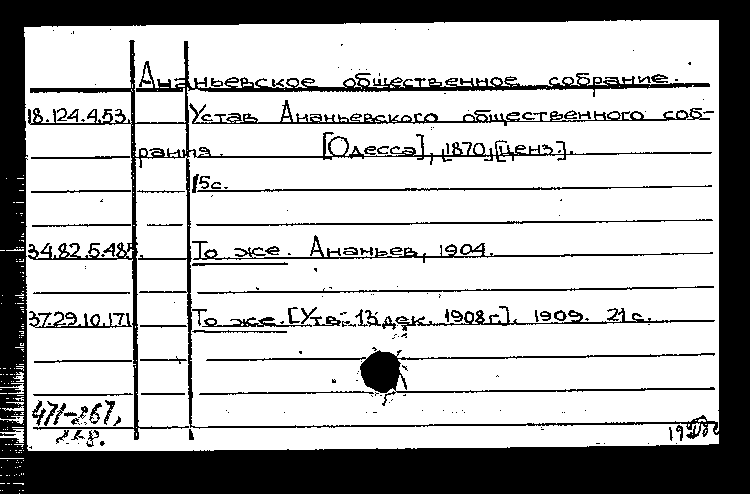 Ананьевское общественное собрание.
18.124.4.53. Устав Ананьевского общественного соб-
рания. [Одесса], [1870, ценз.].
15с.
34.82.5.485. То же. Ананьев, 1904.
37.29.10.171 То же. [Утв. 13 дек. 1908г.]. 1909. 21с.
471-267,
268.